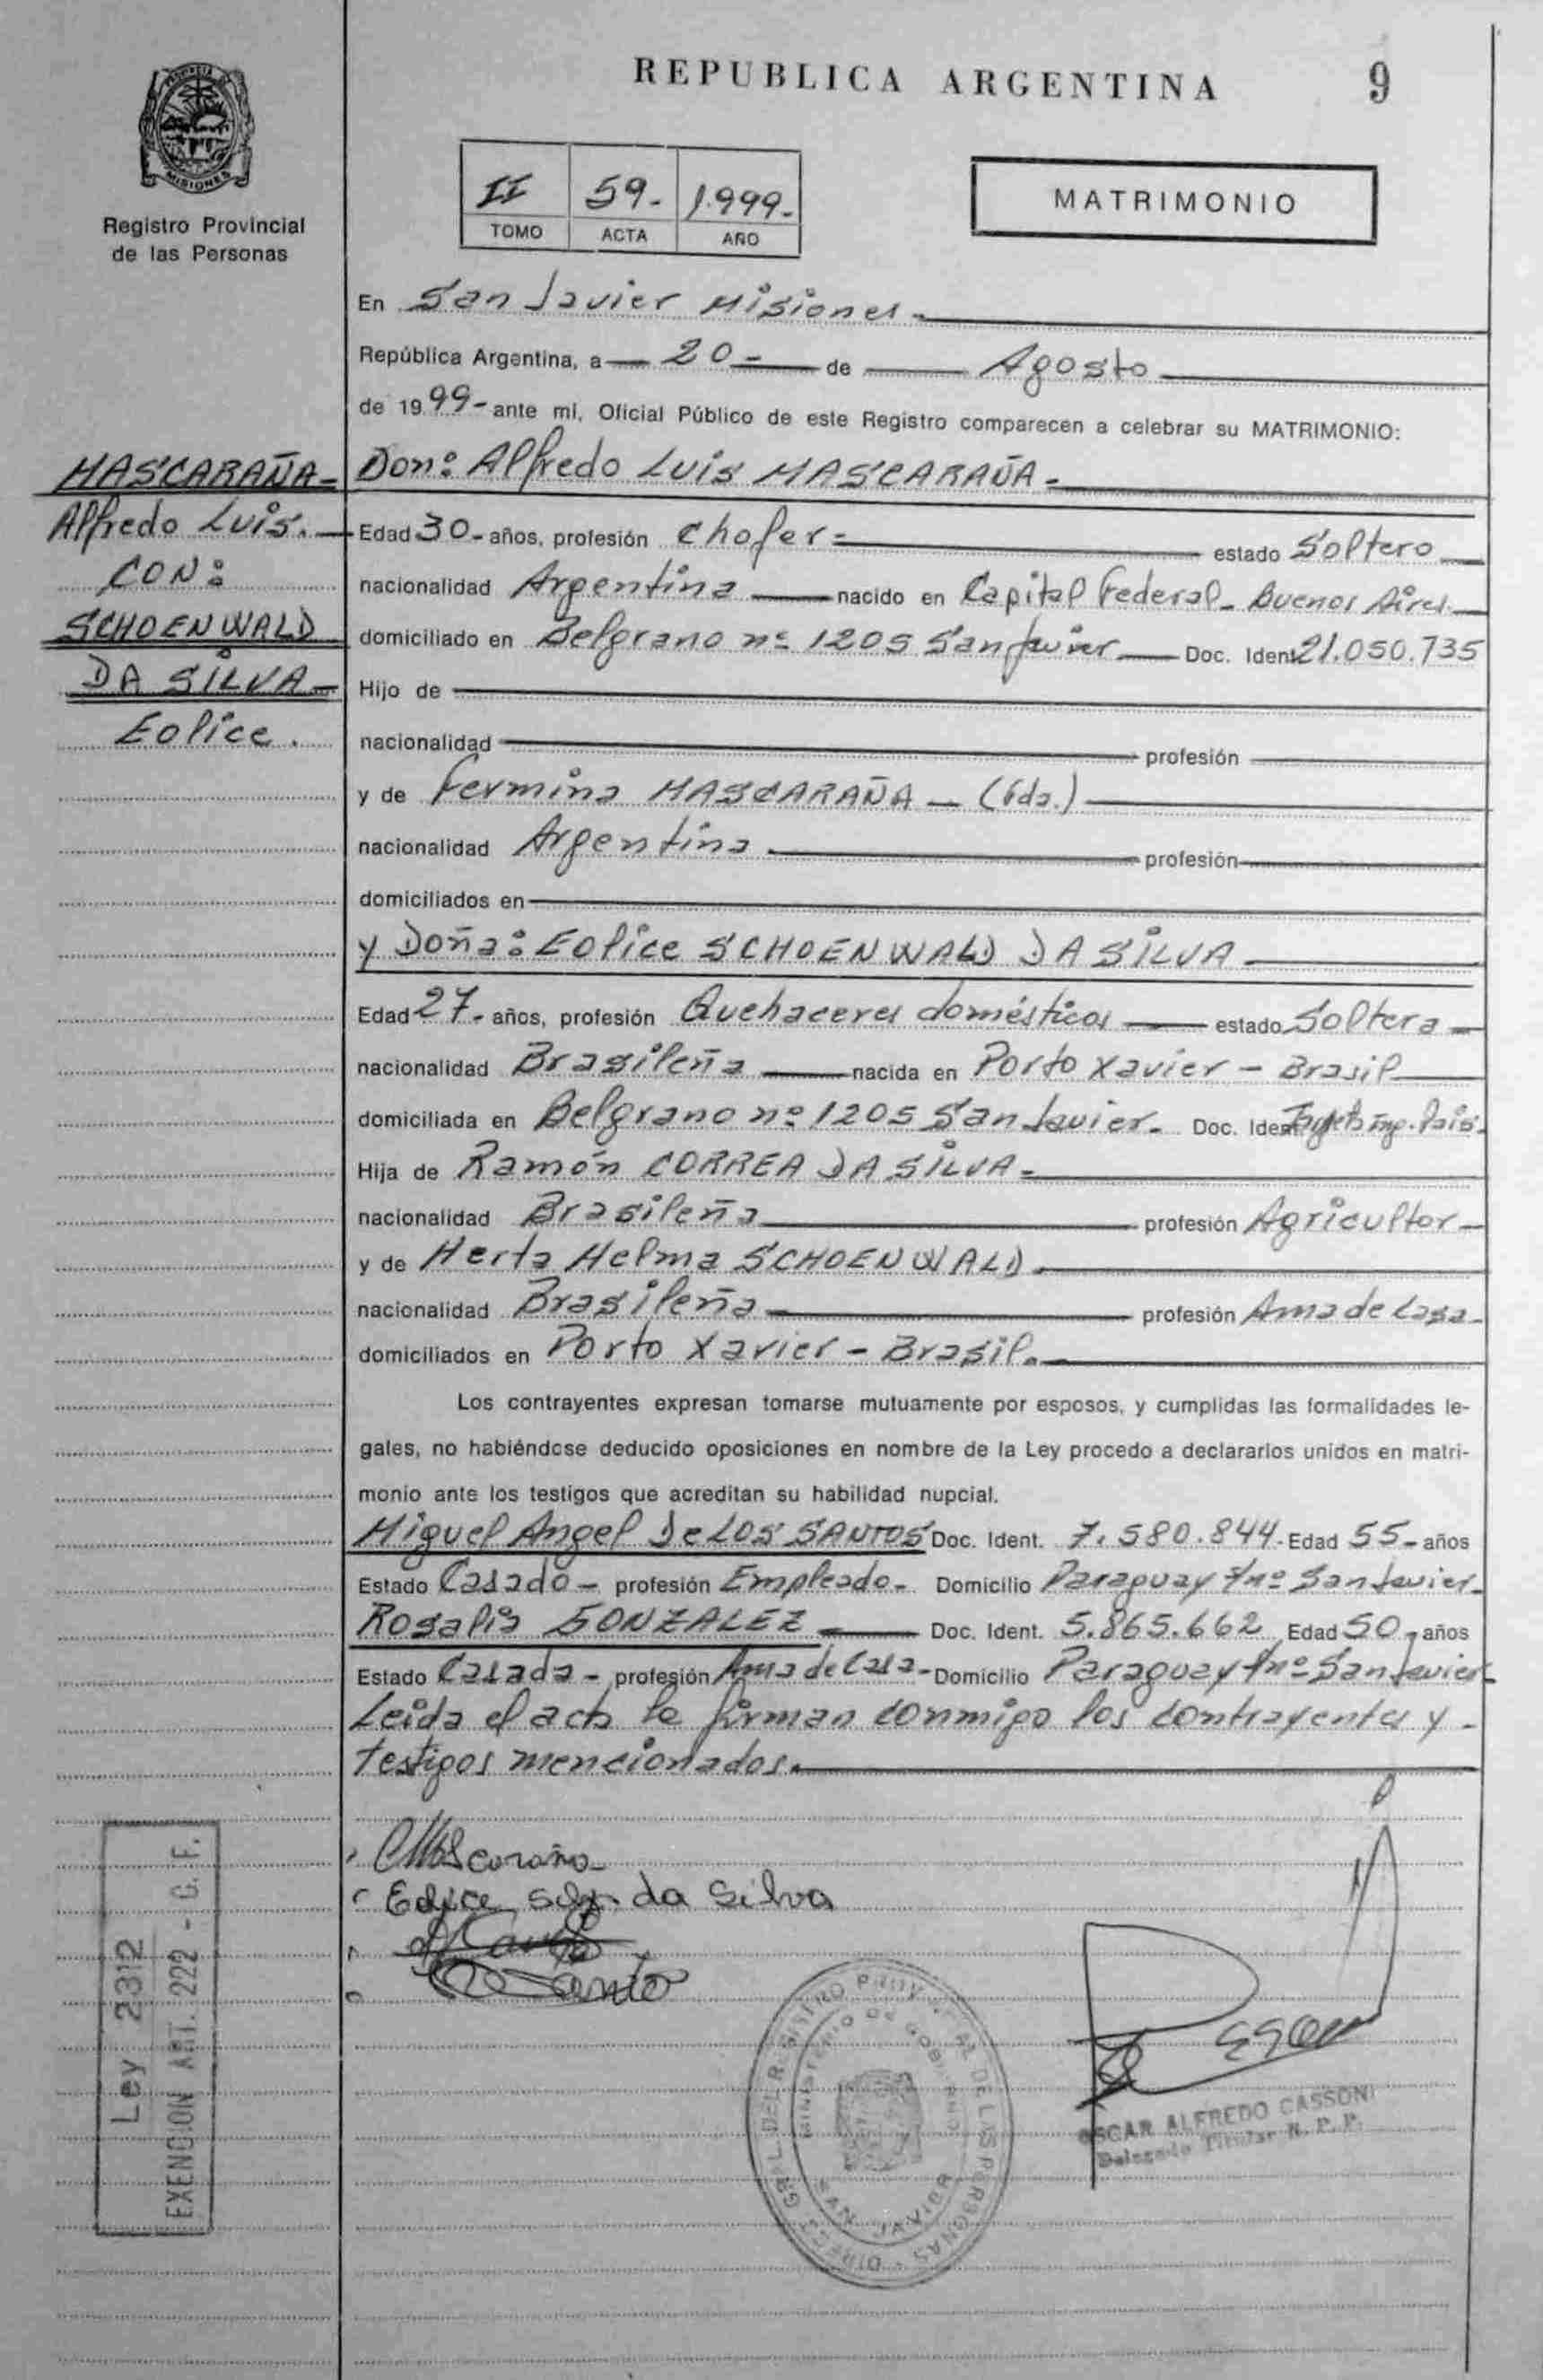 REPUBLICA ARGENTINA
9
MISIONES
Registro Provincial
de las Personas
II
59.
1.999.
TOMO
ACTA
AÑO
MATRIMONIO
En San Javier Misiones.
República Argentina, a 20 de Agosto
de 1999- ante mi, Oficial Público de este Registro comparecen a celebrar su MATRIMONIO:
MASCARAÑA
Alfredo Luis.
CON:
SCHOENWALD
DA SILVA
Eolice.
Don: Alfredo Luis MASCARAÑA.
Edad 30- años, profesión Chofer estado Soltero
nacionalidad Argentina nacido en Capital Federal- Buenos Aires.
domiciliado en Belgrano nº 1205 San Javier Doc. Ident. 21.050.735
Hijo de
nacionalidad profesión
y de Fermina MASCARAÑA
nacionalidad Argentina profesión
domiciliados en
y Doña: Eolice SCHOENWALD DA SILVA
Edad 27- años, profesión Quehaceres domésticos estado Soltera
nacionalidad Brasileña nacida en Porto Xavier - Brasil
domiciliada en Belgrano nº 1205 San Javier. Doc. Ident.
Hija de Ramón CORREA DA SILVA
nacionalidad Brasileña profesión Agricultor
y de Herta Helma SCHOENWALD
nacionalidad Brasileña profesión Ama de Casa
domiciliados en Porto Xavier - Brasil.
Los contrayentes expresan tomarse mutuamente por esposos, y cumplidas las formalidades le-
gales, no habiéndose deducido oposiciones en nombre de la Ley procedo a declararlos unidos en matri-
monio ante los testigos que acreditan su habilidad nupcial.
Miguel Angel De LOS SANTOS Doc. Ident. 7.580.844- Edad 55- años
Estado Casado- profesión Empleado- Domicilio Paraguay San Javier
Rosalia GONZALEZ Doc. Ident. 5.865.662 Edad 50- años
Estado Casada- profesión Ama de Casa- Domicilio Paraguay San Javier
Leida el acta la firman conmigo los contrayentes y
testigos mencionados.
da Silva
Ley 2312
EXENCION ART. 222 - C. F.
OSCAR ALFREDO CASSONI
Delegado Titular R. P. P.
MINISTERIO DE GOBIERNO
SAN JAVIER